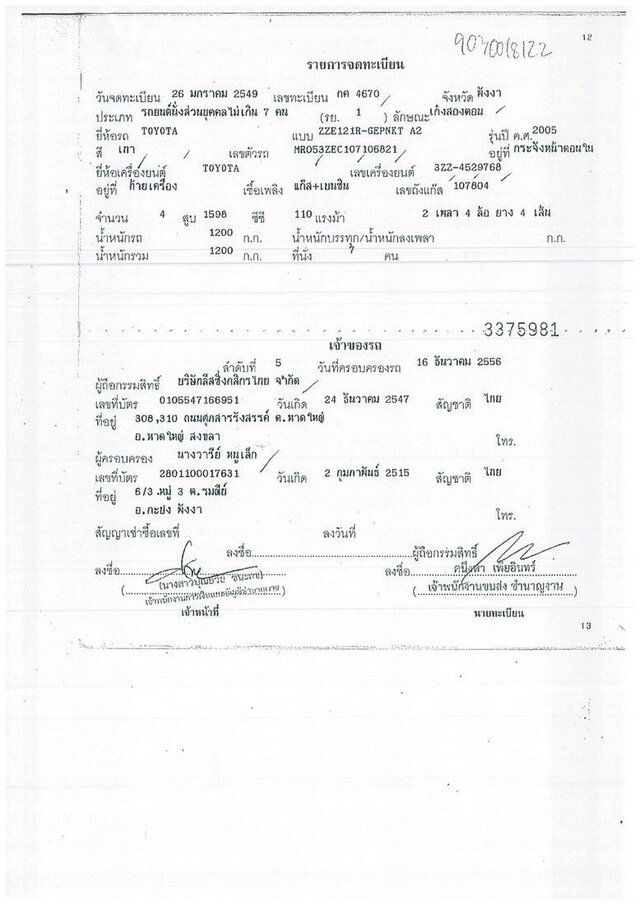 9030018122
12
รายการจดทะเบียน
วันจดทะเบียน 26 มกราคม 2549 เลขทะเบียน กค 4670 จังหวัด พังงา
ประเภท รถยนต์นั่งส่วนบุคคลไม่เกิน 7 คน (รย. 1 ) ลักษณะ เก๋งสองตอน
ยี่ห้อรถ TOYOTA แบบ ZZE121R-GEPNKT A2 รุ่นปี ค.ศ.2005
สี เทา เลขตัวรถ MR053ZEC107106821 อยู่ที่ กระจังหน้าตอนใน
ยี่ห้อเครื่องยนต์ TOYOTA เลขเครื่องยนต์ 3ZZ-4529768
อยู่ที่ ท้ายเครื่อง เชื้อเพลิง แก๊ส+เบนซิน เลขถังแก๊ส 107804
จำนวน 4 สูบ 1598 ซีซี 110 แรงม้า 2 เพลา 4 ล้อ ยาง 4 เส้น
น้ำหนักรถ 1200 ก.ก. น้ำหนักบรรทุก/น้ำหนักลงเพลา ก.ก.
น้ำหนักรวม 1200 ก.ก. ที่นั่ง 7 คน
3375981
เจ้าของรถ
ลำดับที่ 5 วันที่ครอบครองรถ 16 ธันวาคม 2556
ผู้ถือกรรมสิทธิ์ บริษัทลีสซิ่งกสิกรไทย จำกัด
เลขที่บัตร 0105547166951 วันเกิด 24 ธันวาคม 2547 สัญชาติ ไทย
ที่อยู่ 308,310 ถนนศุภสารรังสรรค์ ต.หาดใหญ่
อ.หาดใหญ่ สงขลา โทร.
ผู้ครอบครอง นางวารีย์ หนูเล็ก
เลขที่บัตร 2801100017631 วันเกิด 2 กุมภาพันธ์ 2515 สัญชาติ ไทย
ที่อยู่ 6/3 หมู่ 3 ต.รมณีย์
อ.กะปง พังงา โทร.
สัญญาเช่าซื้อเลขที่ ลงวันที่
ลงชื่อ ผู้ถือกรรมสิทธิ์
ลงชื่อ ลงชื่อ
(นางสาว
( เจ้าพนักงานขนส่ง ชำนาญงาน )
เจ้าหน้าที่ นายทะเบียน
13